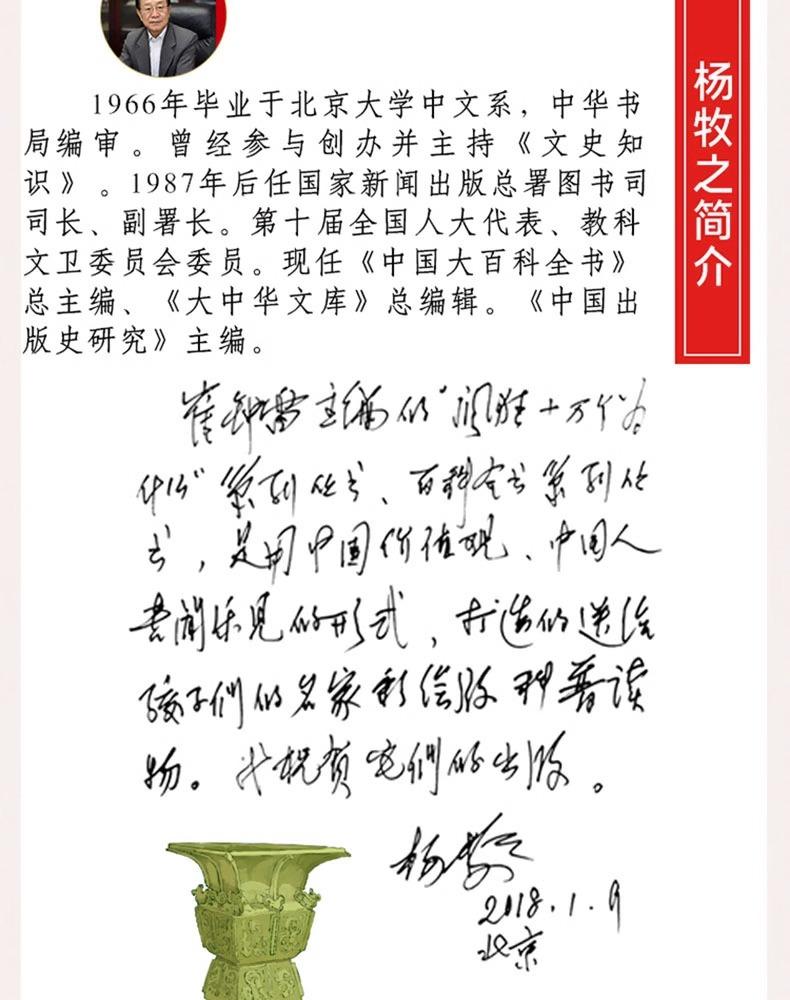 杨牧之简介
1966年毕业于北京大学中文系，中华书
局编审。曾经参与创办并主持《文史知
识》。1987年后任国家新闻出版总署图书司
司长、副署长。第十届全国人大代表、教科
文卫委员会委员。现任《中国大百科全书》
总主编、《大中华文库》总编辑。《中国出
版史研究》主编。
崔钟雷主编的“闯关十万个为
什么”系列丛书、百科全书系列丛
书，是用中国价值观、中国人
喜闻乐见的形式，打造的送给
孩子們的名家彩绘版科普读
物。我祝贺它們的出版。
杨牧之
2018.1.9
北京